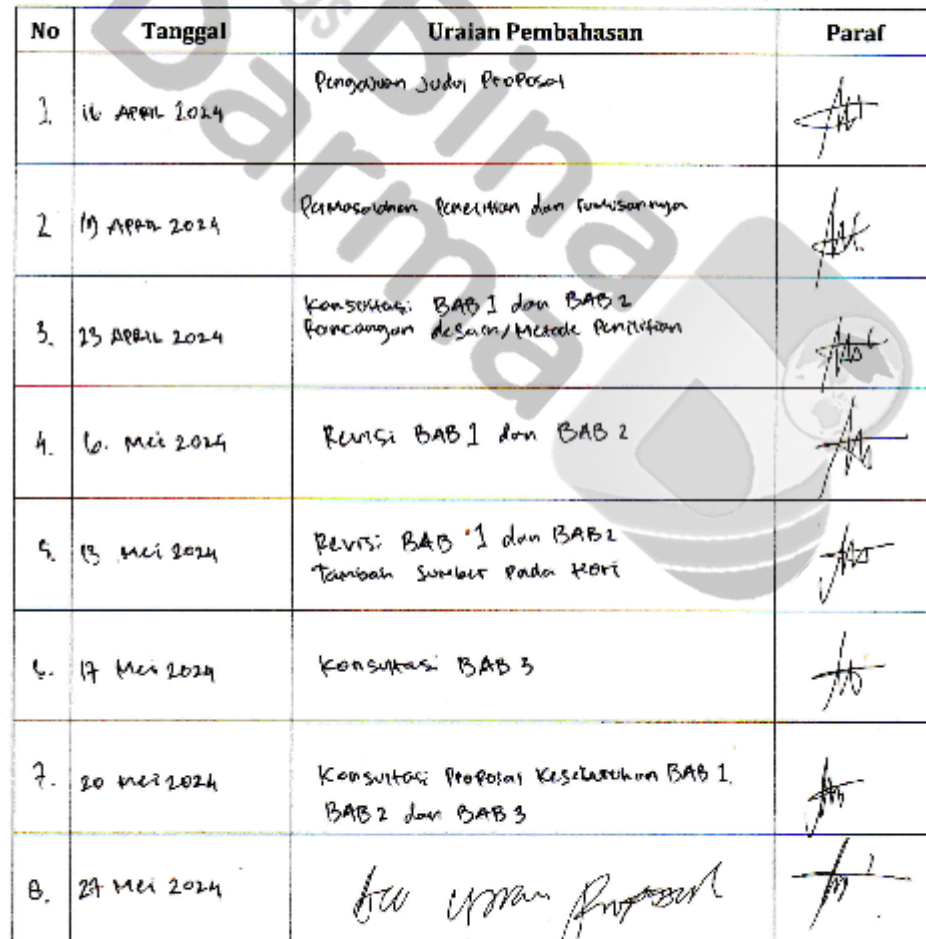 No Tanggal Uraian Pembahasan Paraf
1. 16 APRIL 2024 Pengajuan Judul Proposal
2 19 APRIL 2024 Permasalahan Penelitian dan rumusannya
3. 23 APRIL 2024 Konsultasi BAB 1 dan BAB 2
Rancangan desain/Metode Penilitian
4. 6. Mei 2024 Revisi BAB 1 dan BAB 2
5. 13 Mei 2024 Revisi BAB 1 dan BAB 2
Tambah Sumber pada teori
6. 17 Mei 2024 Konsultasi BAB 3
7. 20 Mei 2024 Konsultasi Proposal Keseluruhan BAB 1.
BAB 2 dan BAB 3
8. 27 Mei 2024 Acc Ujian Proposal
Bina
Darma